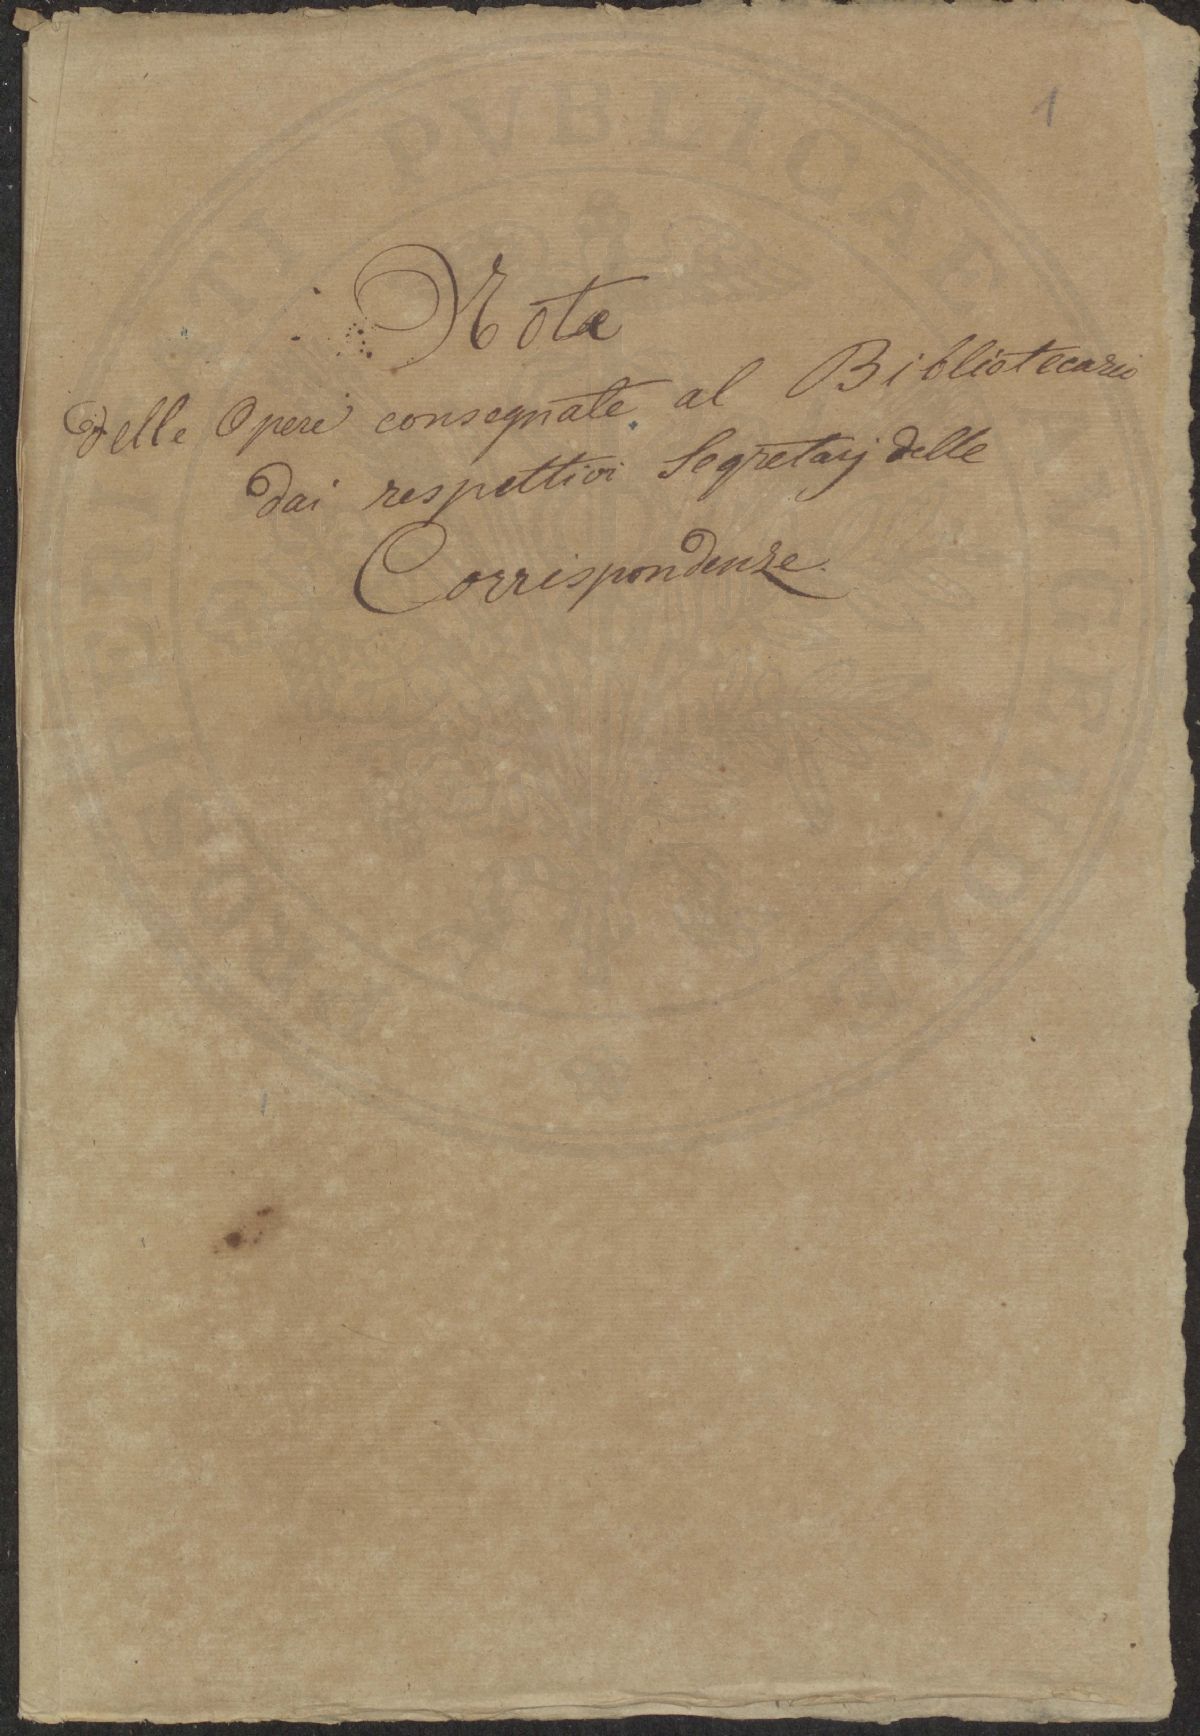 1
Nota
delle Opere consegnate al Bibliotecario
dai respettivi Segretarj delle
Corrispondenze.
PVBLICAE